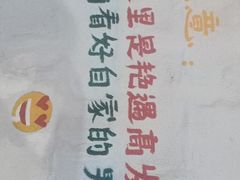 意:
里是艳遇高发
看好自家的男